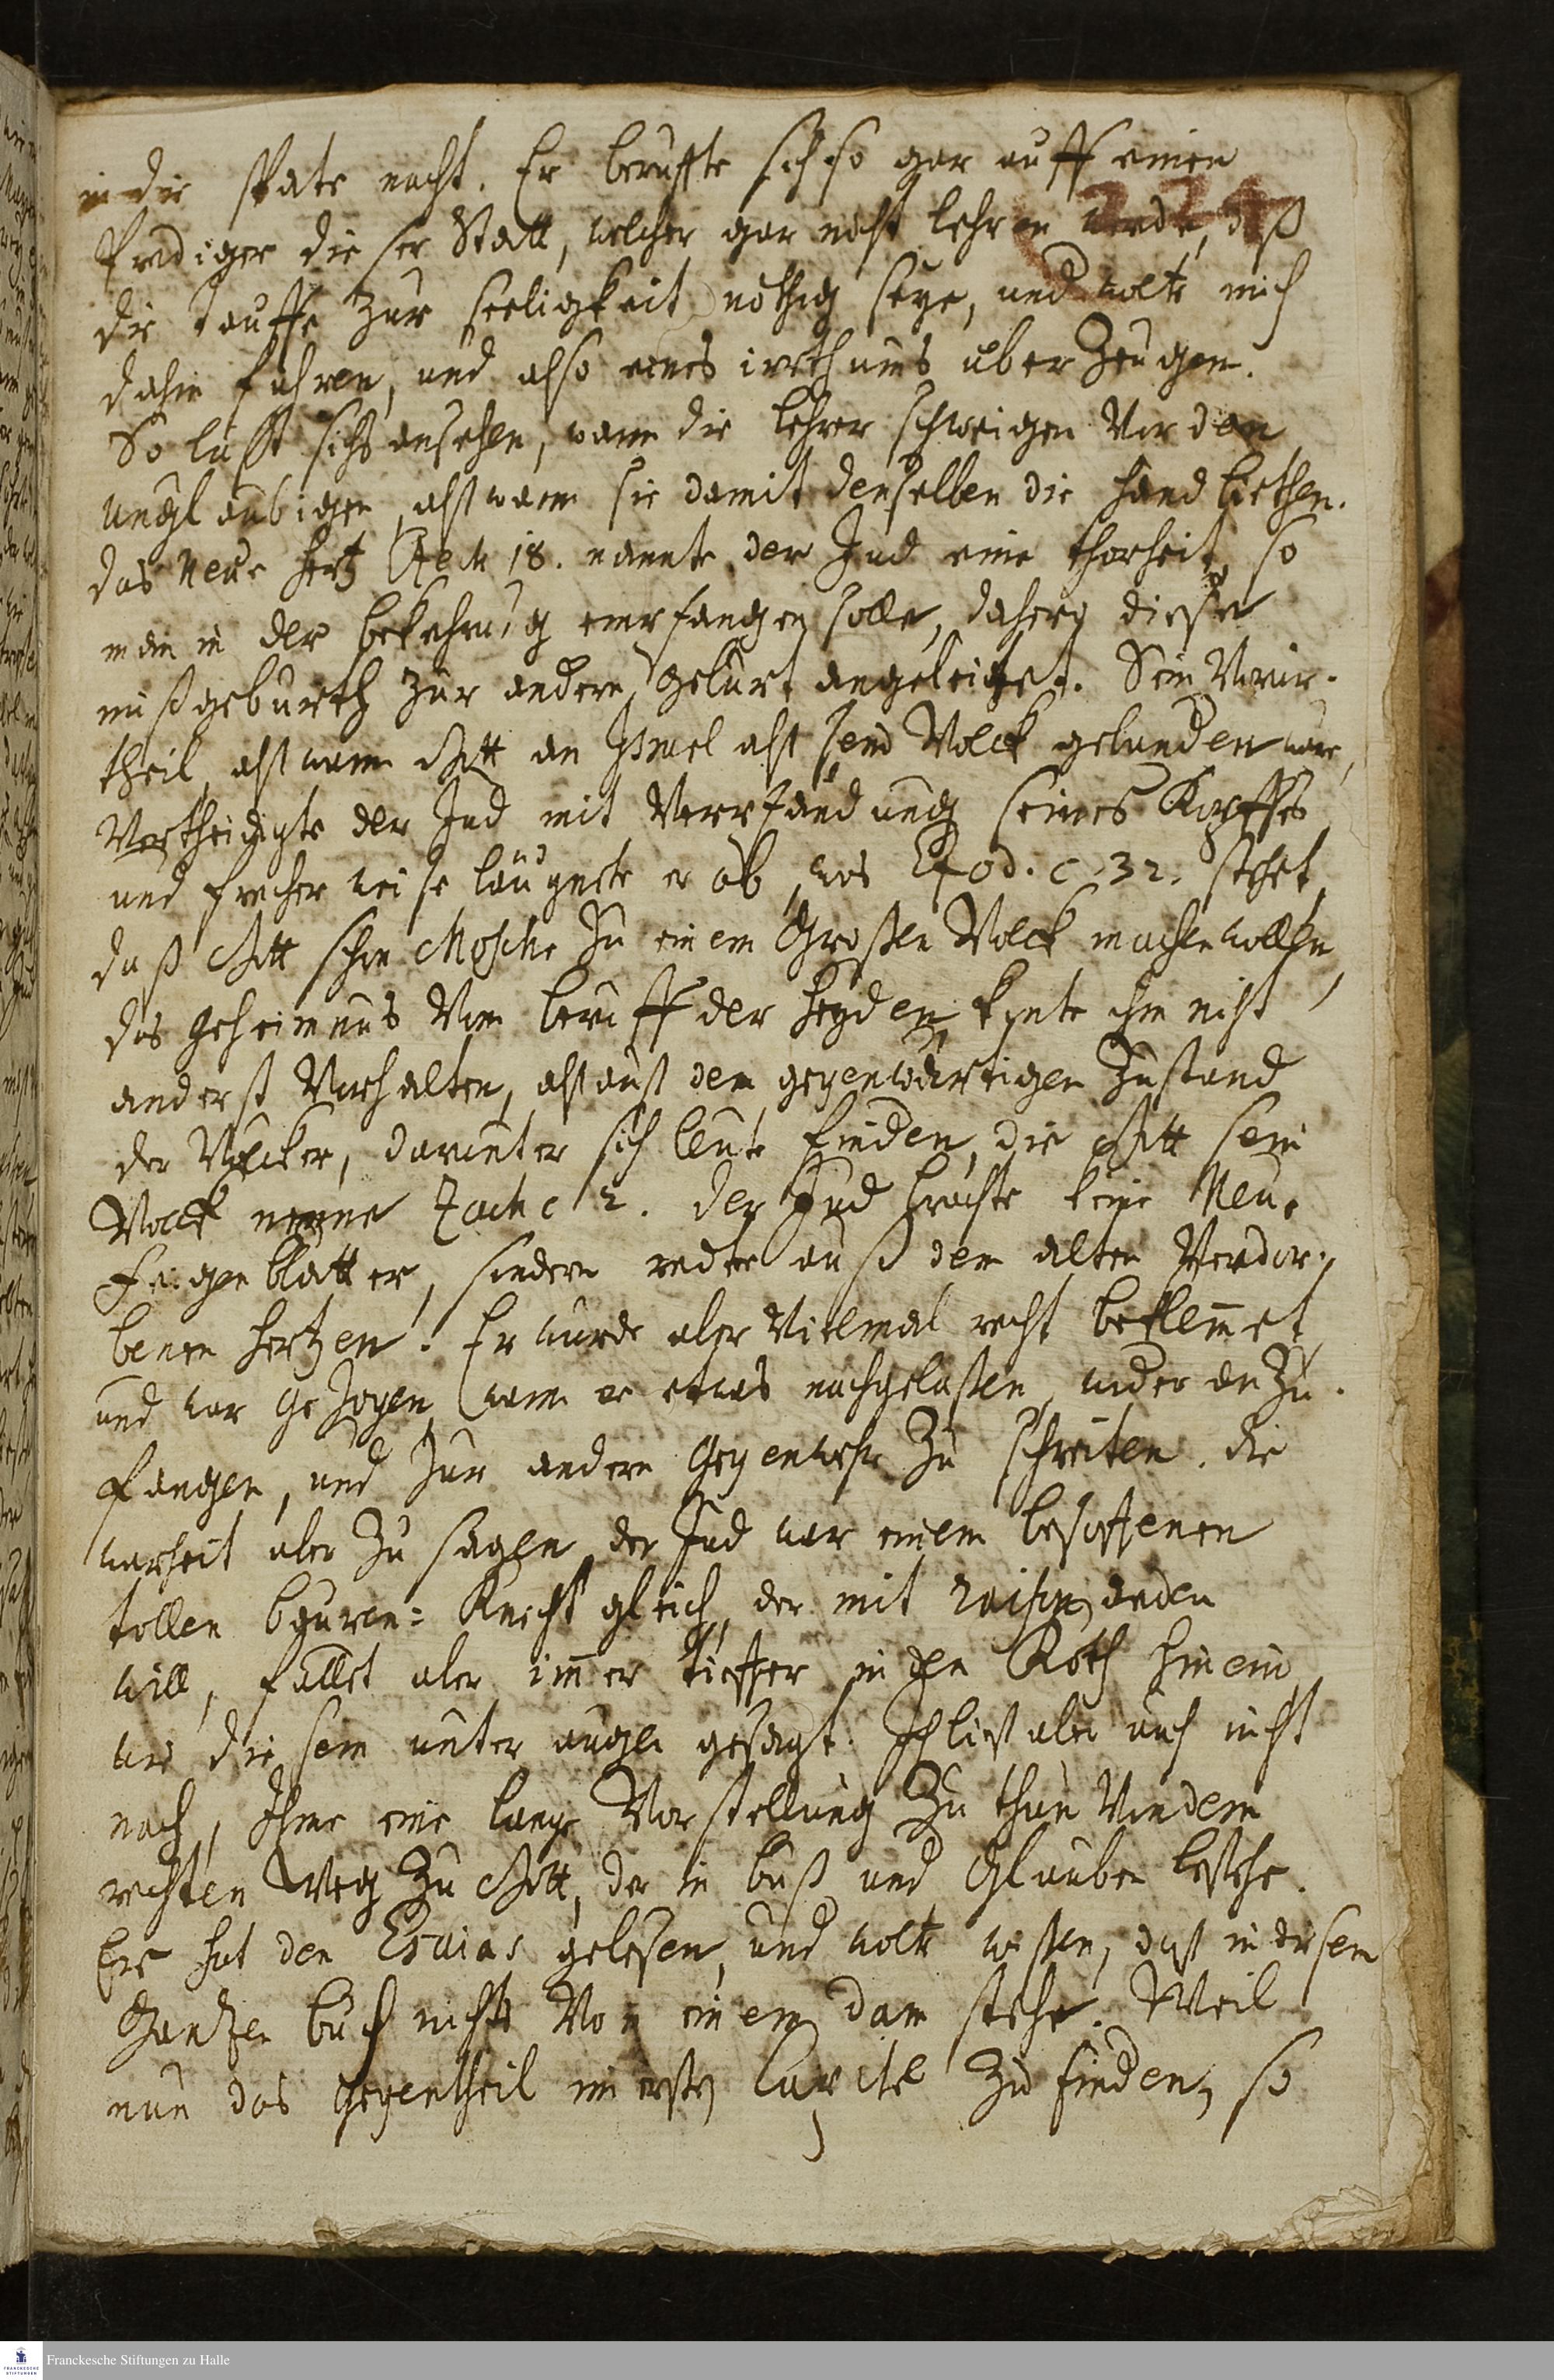 in die spate nacht. Er beruffte sich so gar auff einen
224
Prediger dieser Statt, welcher gar nicht lehren werde, daß
die Tauffe zur seeligkeit nöthig seye, und wolte mich
dahin führen, und also eines irrthums überzeugen.
So läßt sichs ansehen, wann die lehrer schweigen Vor den
Ungläubigen, alß wann sie damit denselben die hand biethen.
das Neue hertz Ezech 18. nannte der Jud eine thorheit, so
man in der bekehrung empfangen solle, dahero dieser
mißgeburth zur andern geburt angeleitet. Sein Vorur-
theil, alß wann Gott an Israel alß sein Volck gebunden wäre,
Vertheidigte der Jud mit Verpfändung seines Kopffes,
und frecher weise läugnete er ab, was Exod. c. 32. stehet,
daß Gott schon Mosche zu einem Großen Volck machen wollen,
das Geheimnus Vom beruff der heyden konte ihm nicht
anderst Vorhalten, alß auß dem gegenwärtigen Zustand
der Völcker, darunter sich leute finden, die Gott sein
Volck nenne Zach c 2. der Jud brachte keine Neue
Feigenblätter, sondern redete auß dem alten Verdor-
benen hertzen. Er wurde aber Vielmal recht beklemmet,
und war gezogen, wann er etwas nachgelaßen, wider anzu-
fangen, und zur andern Gegenwehr zu schreiten. die
warheit aber zu sagen, der Jud war einem besoffenen
tollen bauren-Knecht gleich, der mit raison reden
will, fället aber immer tieffer in den Koth hinein,
wie diesem unter augen gesagt. Ich ließ aber auch nicht
nach, Ihme eine lange Vorstellung zu thun Von dem
rechten Weg zu Gott, der in buß und Glauben bestehe.
Er hat den Esaias gelesen, und wolte wissen, daß in diesem
Gantzen buch nichts Von einem dam stehe. Weil
nun das Gegentheil im ersten Capitel zu finden, so
Franckesche Stiftungen zu Halle